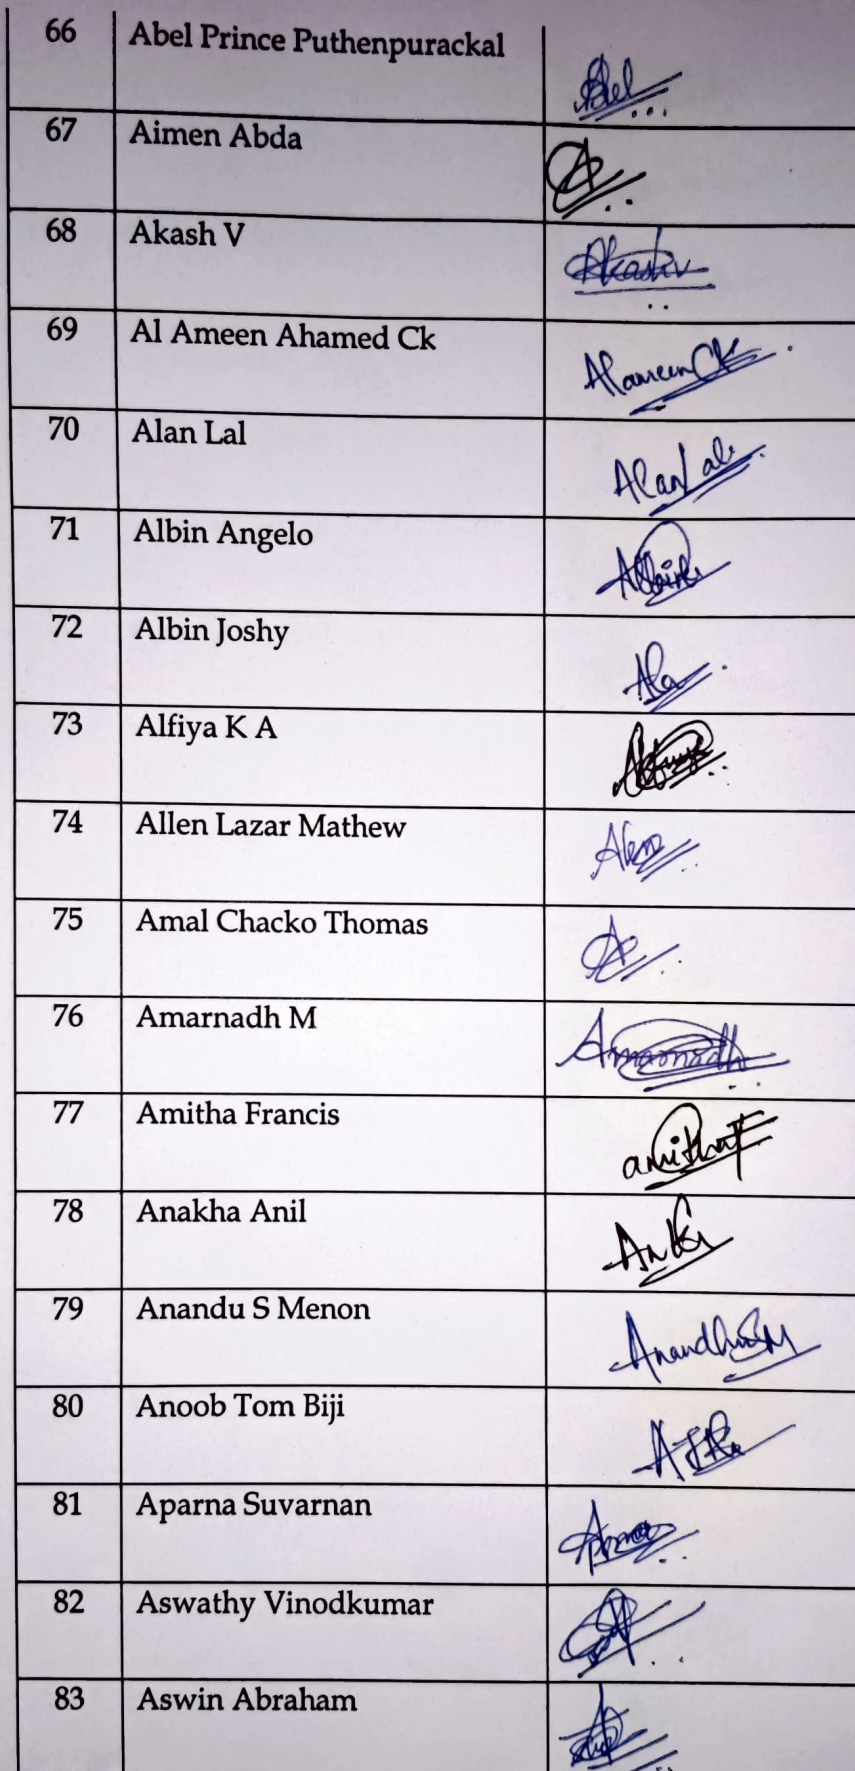 66 Abel Prince Puthenpurackal Abel
67 Aimen Abda
68 Akash V Akash v
69 Al Ameen Ahamed Ck Al ameen CK
70 Alan Lal Alan Lal
71 Albin Angelo
72 Albin Joshy
73 Alfiya K A
74 Allen Lazar Mathew
75 Amal Chacko Thomas
76 Amarnadh M Amarnadh
77 Amitha Francis amitha F
78 Anakha Anil
79 Anandu S Menon Anandhu S M
80 Anoob Tom Biji
81 Aparna Suvarnan
82 Aswathy Vinodkumar
83 Aswin Abraham